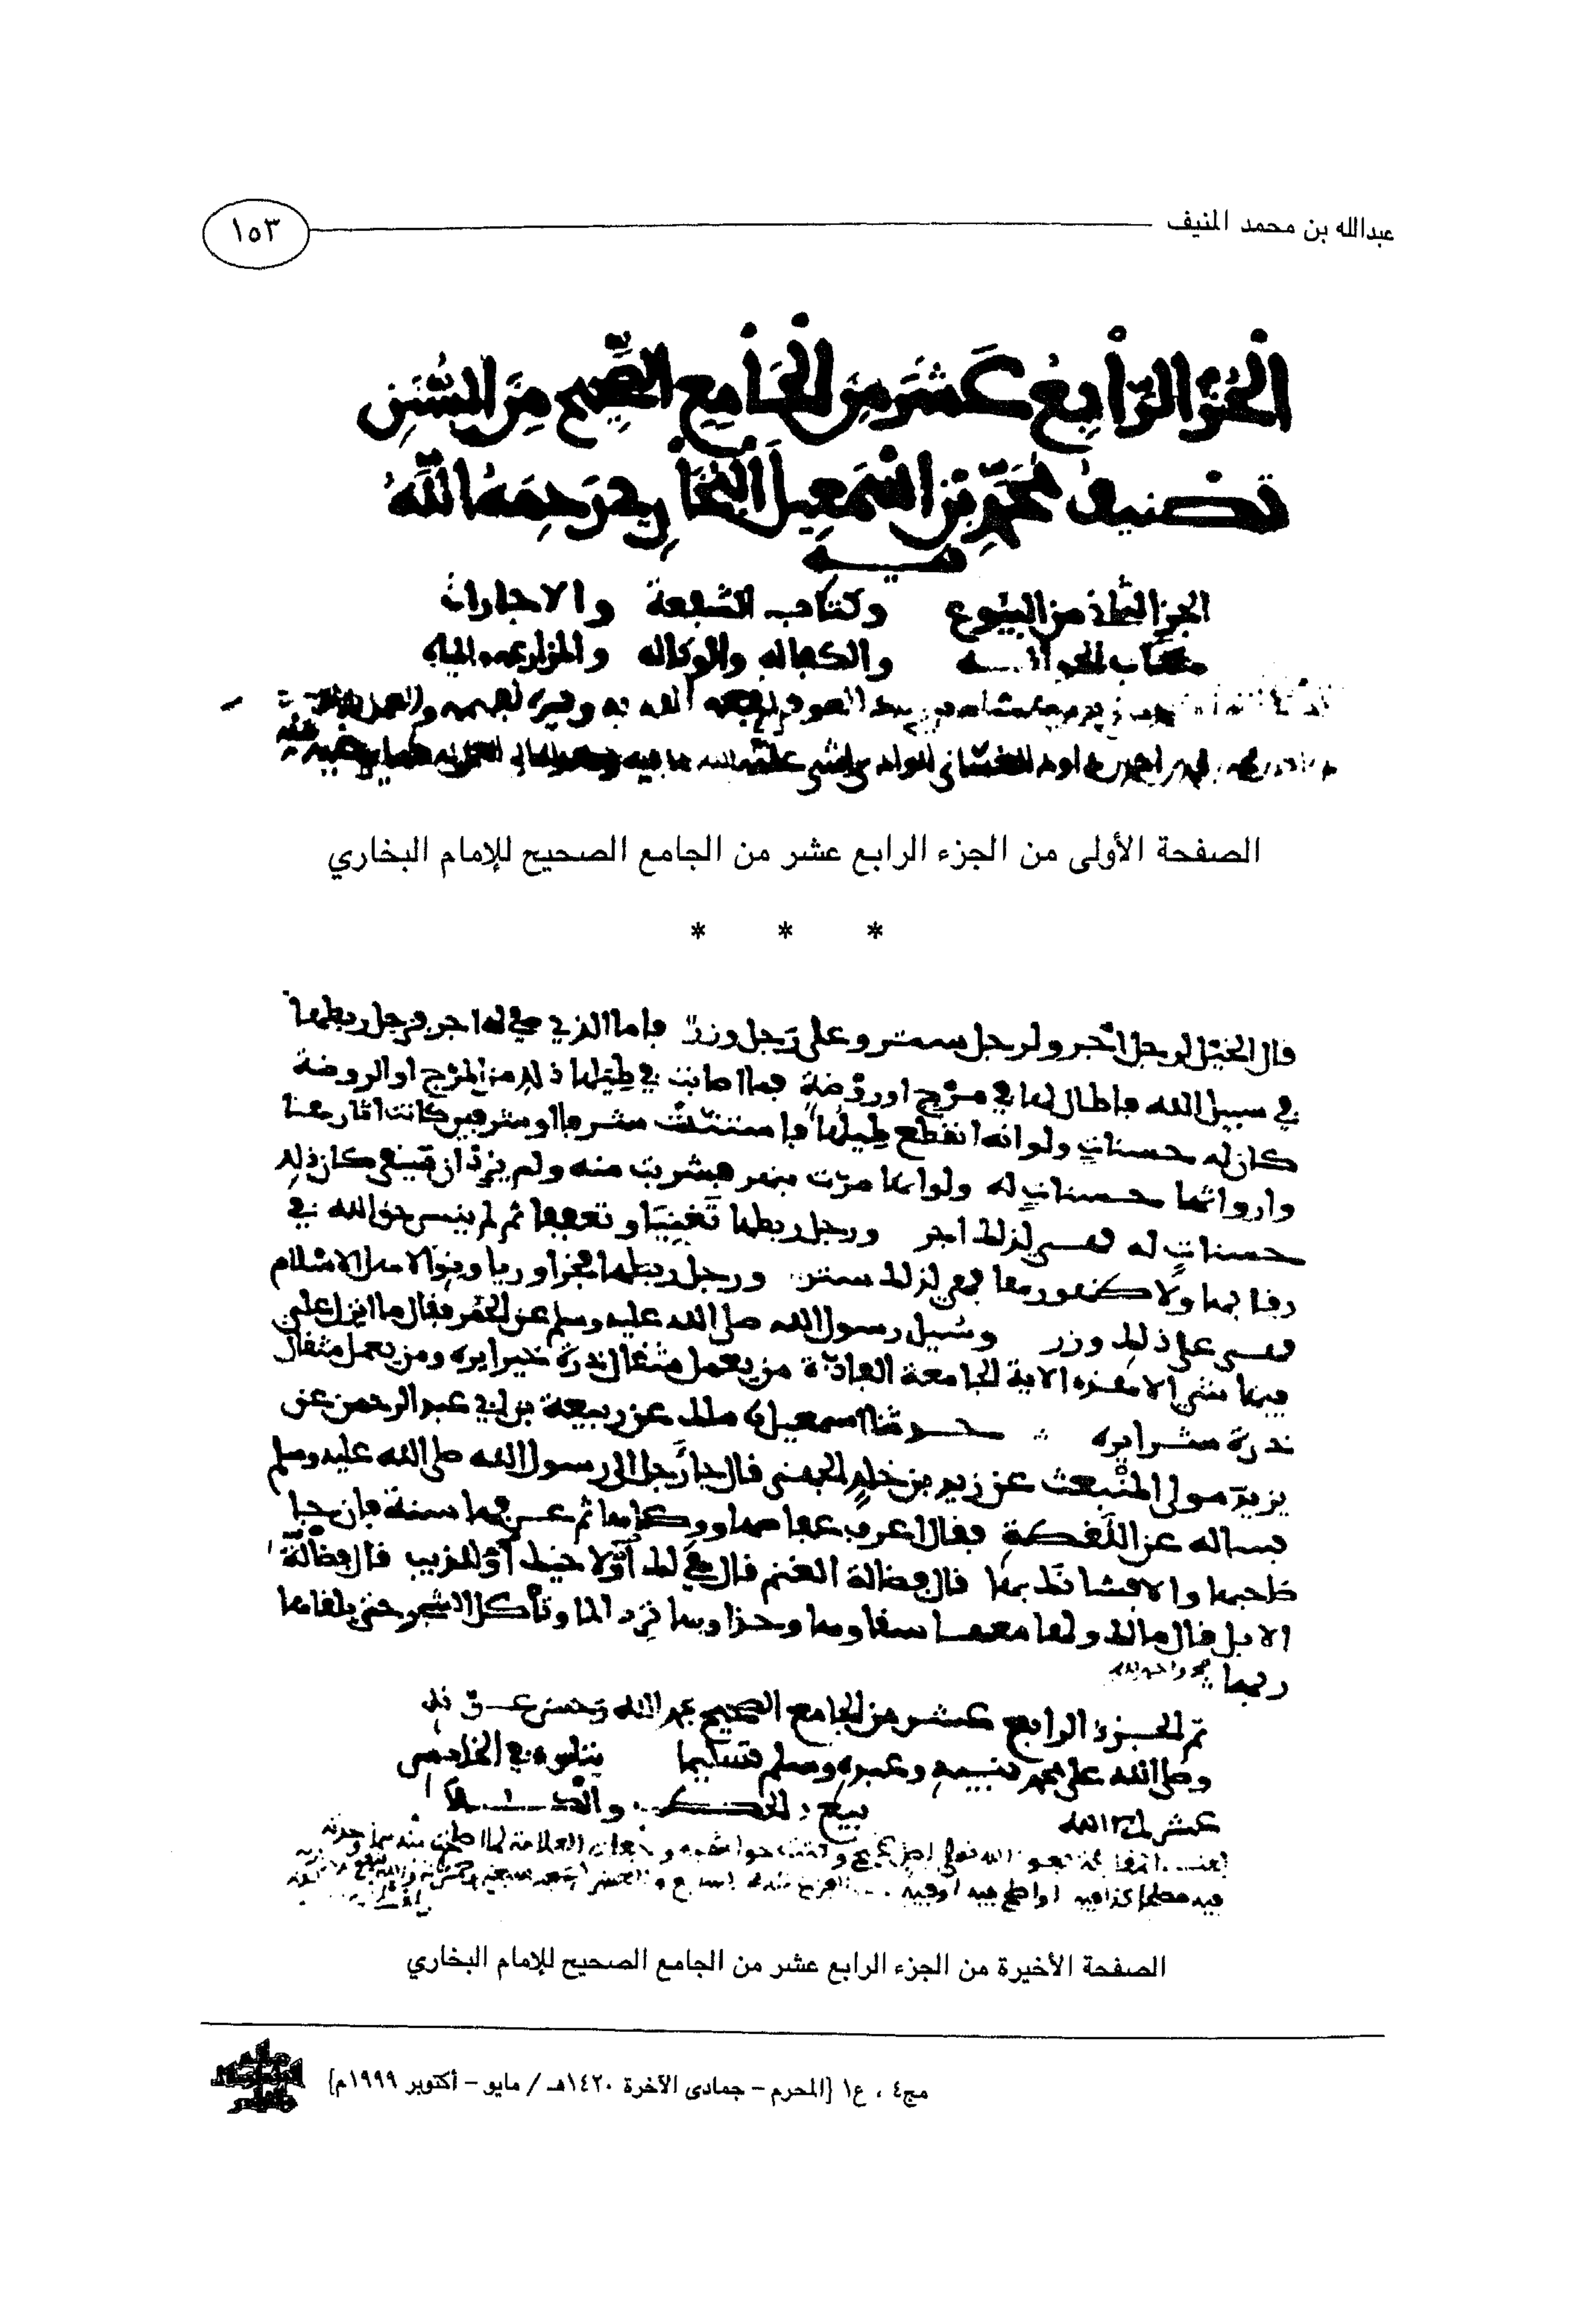 عبدالله بن محمد المنيف
١٥٣
الجزؤ الرابع عشر من الجامع الصحيح من السنن
تصنيف محمد بن اسمعيل البخاري رحمه الله
فيه
الجز الثاني من البيوع وكتاب الشفعة والاجارات
والكفاله والوكاله
الصفحة الأولى من الجزء الرابع عشر من الجامع الصحيح للإمام البخاري
* * *
قال الخيل لرجل اجر ولرجل ستر وعلى رجل وزر فاما الذي هي له اجر فرجل ربطها
في سبيل الله فاطال لها في مرج او روضة فما اصابت في طيلها ذلك من المرج او الروضة
كان له حسنات ولو انه انقطع طيلها فاستنت شرفا او شرفين كانت اثارها
وارواثها حسنات له ولو انها مرت بنهر فشربت منه ولم يرد ان تسقي كان ذلك
حسنات له فهي لذلك اجر ورجل ربطها تغنيا وتعففا ثم لم ينس حق الله في
رقابها ولا ظهورها فهي لذلك ستر ورجل ربطها فخرا وريا ونوا لاهل الاسلام
فهي على ذلك وزر وسيل رسول الله صلى الله عليه وسلم عن الحمر فقال ما انزل علي
فيها شي الا هذه الاية الجامعة الفاذة من يعمل مثقال ذرة خيرا يره ومن يعمل مثقال
ذرة شرا يره حدثنا اسمعيل ملك عن ربيعة بن ابي عبد الرحمن عن
يزيد مولى المنبعث عن زيد بن خلد الجهني قال جا رجل الى رسول الله صلى الله عليه وسلم
فساله عن اللقطة فقال اعرف عفاصها ووكاها ثم عرفها سنة فان جا
صاحبها والا فشانك بها قال فضالة الغنم قال هي لك او لاخيك او للذيب قال فضالة
الابل قال مالك ولها معها سقاوها وحذاوها ترد الما وتاكل الشجر حتى يلقاها
ربها
تم الجزء الرابع عشر من الجامع الصحيح بحمد الله وحسن عونه
وصلى الله على محمد نبيه وعبده وسلم تسليما يتلوه في الخامس
عشر ان شا الله بيع الحطب والكلا
الصفحة الأخيرة من الجزء الرابع عشر من الجامع الصحيح للإمام البخاري
مج٤ ، ع١ [المحرم – جمادى الآخرة ١٤٢٠هـ / مايو – أكتوبر ١٩٩٩م]